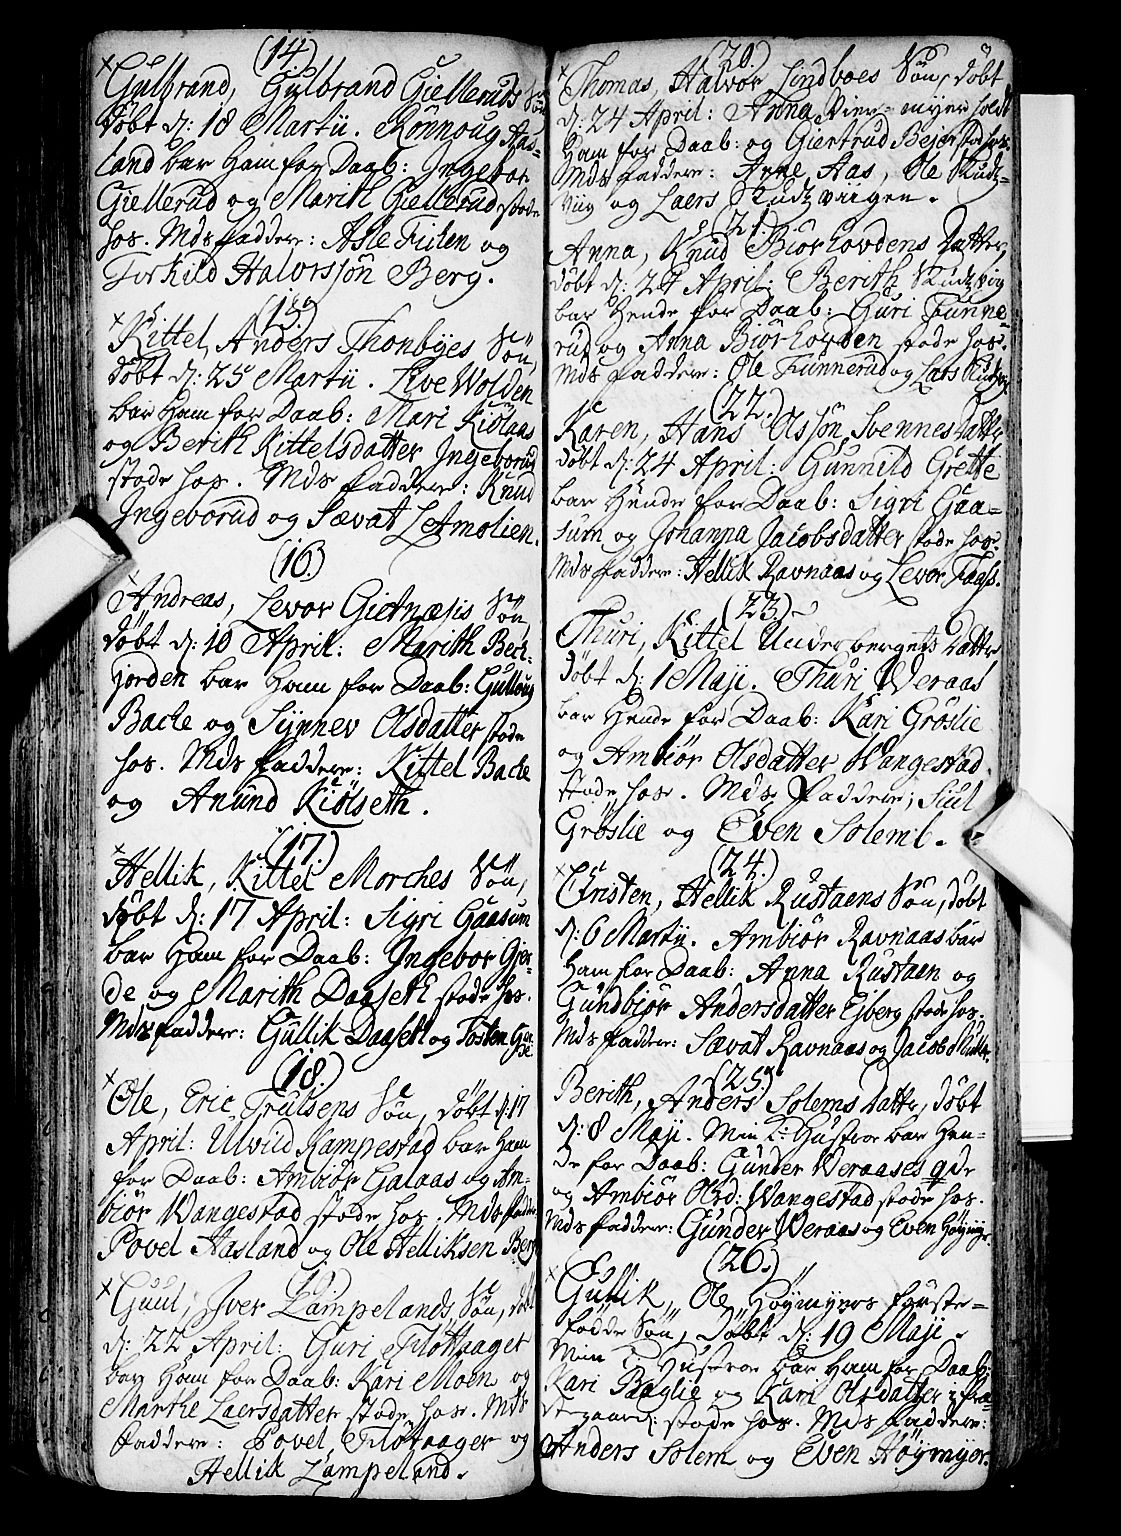 (14.)
Gulbrand, Gulbrand Giellerüds Søn
døbt d: 18 Martii. Rønnoug Aas-
land bar Ham for Daab: Ingebor
Giellerüd og Marith Giellerüd stode
hos. Mds faddere: Asle Fiilen og
Torkild Halvorssøn Berg.
(15.)
Kittel, Anders Thonbyes Søn,
døbt d: 25 Martii. Live Wolden
bar Ham for Daab: Mari Kiølaas
og Berith Kittelsdatter Ingeborud
stode hos. Mds faddere: Knüd
Ingeborüd og Sævat Letmolien.
(16.)
Andreas, Levor Gietnæsis Søn,
døbt d: 10 April: Marith Bech-
jorden bar Ham for Daab: Gülloug
Bache og Synnev Olsdatter stode
hos. Mds faddere: Kittel Bache
og Anünd Kiølseth.
(17.)
Hellik, Kittel Morches Søn,
døbt d: 17 April: Sigri Gaasum
bar Ham for Daab: Ingebor Gjer-
de og Marith Daaseth stode hos.
Mds faddere: Güllik Daaseth og Tosten Gier-
de.
(18.)
Ole, Eric Trulsens Søn, døbt d: 17
April: Ulvild Kampestad bar Ham
for Daab: Ambiør Galaas og Am-
biør Wangestad stode hos. Mds faddr:
Povel Aasland og Ole Helliksen Berg
Guul, Iver Lampelands Søn, døbt
d: 22 April: Guri Fløttaager
bar Ham for Daab: Kari Moen og
Marthe Laersdatter stode hos. Mds
faddere: Povel Fløtaager og
Hellik Lampeland.
(20.)
Thomas, Halvor Lindboes Søn, døbt
d: 24 April: Anna holdt
Ham for Daab: og Giertrud stod hos.
Mds faddere: Anne Aas, Ole Skudz-
viig og Laers Skudzviigen.
(21.)
Anna, Knüd Biørhovdens Datter,
døbt d: 24 April: Berith Skudzvig
bar Hende for Daab: Guri Funne-
rüd og Anna Biørhovden stode hos.
Mds faddere: Ole Funnerud og Lars Skudzvig
(22.)
Karen, Hans Olssøn Svennes Datter
døbt d: 24 April: Gunnild Grette
bar Hende for Daab: Sigri Gaa-
sum og Johanna Jacobsdatter stode hos.
Mds faddere: Hellik Ravnaas og Levor
(23.)
Thuri, Kittel Underbergets Datter
døbt d: 1 Maji. Thuri Veraas
bar Hende for Daab: Kari Grøslie
og Ambiør Olsdatter Wangestad
stode hos. Mds faddere; Siul
Grøslie og Even Solem.
(24.)
Christen, Hellik Rustaens Søn, døbt
d: 6 Martii. Ambiør Ravnaas bar
Ham for Daab: Anna Rustaen og
Gundbiør Andersdatter Ejberg stode hos.
Mds faddere: Sævat Ravnaas og Jacob
(25.)
Berith, Anders Solems Datter, døbt
d: 8 Maji. Min K: Hustroe bar Hen-
de for Daab: Gunder Veraases
og Ambiør Olsd: Wangestad stode hos.
Mds faddere: Günder Veraas og Even Høymyr.
(26.)
Gullik, Ole Høymyrs første-
fødde Søn, døbt d: 19 Maji.
Min K: Hustroe bar Ham for Daab:
Kari Baglie og Kari Olsdatter i Præ-
stegaard: stode hos. Mds faddere:
Anders Solem og Even Høymyr.